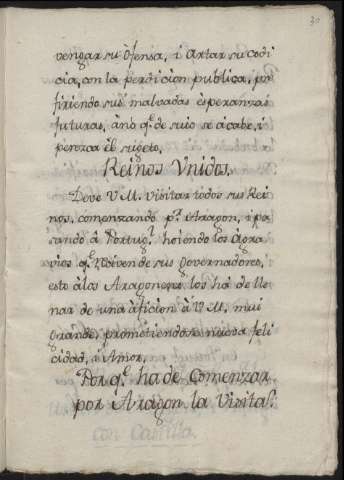 30
vengar su ôfensa, i artar su codi
cia, con la perdicion publica, pr
firiendo sus malvadas esperanzas
futuras, â no q.^e de suio se acabe, i
perezca êl sugeto.
Reinos Vnidos.
Deve V M. visitar todos sus Rei
nos, comenzando p.^r Aragon, i pa
sando â Portug.^l hoiendo los agra
vios q.^e reciven de sus governadores,
esto â los Aragoneses los hâ de lle
nar de una aficion â V. M. mui
grande, prometiendose nueva feli
cidad, i Amor.
Por q.^e ha de Comenzar
por Aragon la Visita.